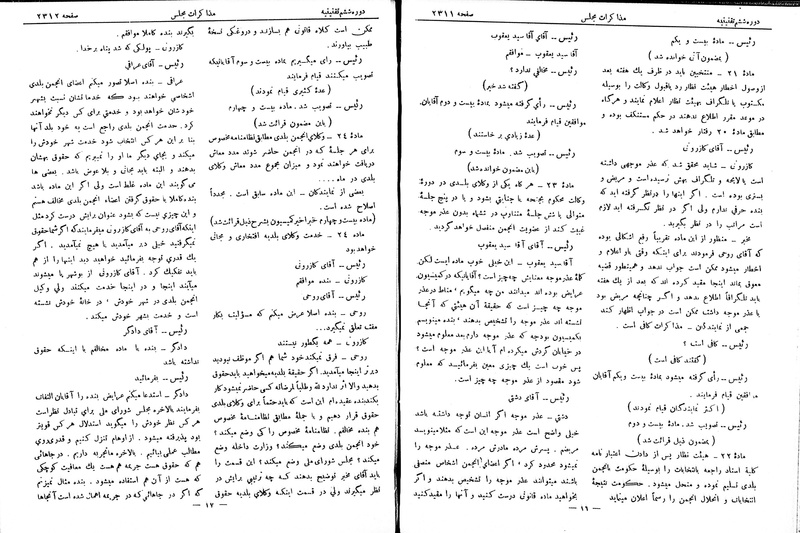 دوره ششم تقنینیه
مذاکرات مجلس
صفحه ۲۳۱۱
رئیس -- مادهٔ بیست و یکم
(بمضمون آتی خوانده شد)
مادهٔ ۲۱ - منتخبین باید در ظرف یك هفته بعد
ازوصول اخطار هیئت نظار رد یاقبول وکالت را بوسیلهٔ
مکتوب یا تلگراف بهیئت نظار اعلام نمایند و هرگاه
در موعد مقرر اطلاع ندهند در حکم مستنکف بوده و
مطابق مادهٔ ۲۰ رفتار خواهد شد.
رئیس -- آقای کازرونی
کازرونی - شاید محقق شد که عذر موجهی داشته
است یا لایحه و تلگراف بهش نرسیده است و مریض و
بستری بوده است. اگر اینها را درنظر گرفته اید که
بنده حرفی ندارم ولی اگر در نظر نگرفته اید لازم
است مراتب را در نظر بگیرید.
مخبر - منظور از این ماده تقریباً رفع اشکالی بوده
که آقای روحی فرمودند برای اینکه وقتی باو اعلام و
اخطار میشود ممکن است جواب ندهد و همینطور قضیه
معوق بماند اینجا مقید کرده اند که بعد از یك هفته
باید تلگرافاً اطلاع بدهد و اگر چنانچه مریض بود
یا عذر موجه داشت ممکن است در جواب اظهار کنند
جمعی از نمایندگان - مذاکرات کافی است.
رئیس -- کافی است؟
(گفتند کافی است)
رئیس -- رأی گرفته میشود بمادهٔ بیست ویکم آقایان
موافقین قیام فرمایند.
(اکثر نمایندگان قیام نمودند)
رئیس -- تصویب شد. مادهٔ بیست و دوم
(بمضمون ذیل قرائت شد)
مادهٔ ۲۲ - هیئت نظار پس از دادن اعتبار نامه
کلیهٔ اسناد راجعه بانتخابات را بوسیلهٔ حکومت بانجمن
بلدی تسلیم نموده و منحل میشود. حکومت نتیجهٔ
انتخابات و انحلال انجمن را رسماً اعلان مینماید
رئیس -- آقای آقا سید یعقوب
آقا سید یعقوب - موافقم
رئیس -- مخالفی ندارد؟
(گفته شد خیر)
رئیس -- رأی گرفته میشود بمادهٔ بیست و دوم آقایان
موافقین قیام فرمایند
(عدهٔ زیادی بر خاستند)
رئیس -- تصویب شد. مادهٔ بیست و سوم
(باین مضمون خوانده شد)
مادهٔ ۲۳ - هر گاه یکی از وکلای بلدی در دورهٔ
وکالت محکوم بجنحه یا جنایتی بشود و یا در پنج جلسهٔ
متوالی یا شش جلسهٔ متناوب در سه ماه بدون عذر موجه
غیبت کند از عضویت انجمن منفصل خواهد گردید.
رئیس -- آقای آقا سید یعقوب
آقا سید یعقوب - این خیلی خوب ماده ایست لکن
کلمهٔ عذر موجه معنایش چه چیز است؟ آقایانیکه در کمیسیون
عرایض بوده اند میدانند من چه میگویم مناط در عذر
موجه چه چیز است که حقیقة آن هیئتی که آنجا
نشسته اند عذر موجه را تشخیص بدهند بنده مینویسم
بکمیسیون بودجه که عذر موجه دارم بعد معلوم میشود
در خیابان گردش میکرده ام آیا این عذر موجه است؟
پس خوب است یك چیزی معین بفرمائید که معلوم
شود مقصود از عذر موجه چه چیز است.
رئیس -- آقای دشتی
دشتی - عذر موجه اگر انسان توجه داشته باشد
خیلی واضح است عذر موجه این است که مثلا مینویسد
مریضم. پسرش مرده مادرش مرده. عذر موجه را
نمیشود محدود کرد. اگر اعضای انجمن اشخاص منصفی
باشند میتوانند عذر موجه را تشخیص بدهند و اگر
بخواهید ماده قانونی درست کنید و آنها را مقید کنید
— ۱۶ —
دوره ششم تقنینیه
مذاکرات مجلس
صفحه ۲۳۱۲
ممکن است کلاه قانونی هم بسازند و دروغکی نسخهٔ
طبیب بیاورند.
رئیس -- رای میگیریم بماده بیست و سوم آقایانیکه
تصویب میکنند قیام فرمایند
(عدهٔ کثیری قیام نمودند)
رئیس -- تصویب شد. ماده بیست و چهارم
(باین مضمون قرائت شد)
مادهٔ ۲۴ - وکلای انجمن بلدی مطابق نظامنامه مخصوص
برای هر جلسهٔ که در انجمن حاضر شوند مدد معاش
دریافت خواهند نمود و میزان مجموع مدد معاش وکلای
بلدی در ماه.....
بعضی از نمایندگان - این ماده سابق است. مجدداً
اصلاح شده است.
(ماده بیست و چهارم خبر اخیر کمیسیون بشرح ذیل قرائت شد)
ماده ۲۴ - خدمت وکلای بلدیه افتخاری و مجانی
خواهد بود
رئیس -- آقای کازرونی
کازرونی - بنده موافقم
رئیس -- آقای روحی
روحی - بنده اصلا عرض میکنم که مسؤلیت بکار
مفت تعلق نمیگیرد...
کازرونی - همه بکطور نیستند
روحی - فرق نمیکند خود شما هم اگر موظف نبودید
دیر تر اینجا میآمدید. اگر حقیقة بلدیه میخواهید باید حقوق
بدهید والا اثر ندارد
بکنند بنده عقیده ام این است که باید حتماً برای وکلای بلدی
حقوق قرار دهیم و با جملهٔ مطابق نظامنامهٔ مخصوص
هم بنده مخالفم. نظامنامهٔ مخصوص را کی وضع میکند؟
خود انجمن بلدی وضع میکند؟ وزارت داخله وضع
میکند؟ مجلس شورای ملی وضع میکند؟ این قسمت را
باید آقای مخبر توضیح بدهند که چه ترتیبی برایش در
نظر میگیرند ولی در قسمت اینکه وکلای بلدیه حقوق
بگیرند بنده کاملا موافقم.
کازرونی - پولکی که شد پناه بر خدا.
رئیس -- آقای عراقی
عراقی - بنده اصلا تصور میکنم اعضای انجمن بلدی
اشخاصی خواهند بود که خدماتشان نسبت بشهر
خودشان خواهد بود و خدمتی برای کس دیگر نخواهند
کرد. خدمت انجمن بلدی راجع است به خود بلد آنها
بنا بر این هر کس انتخاب شود خدمت شهر خودش را
میکند و بجای دیگر ما او را نمیبریم که حقوق بهشان
بدهند و البته باید مجانی و بلا عوض باشد. بعضی ها
می گویند این ماده غلط است ولی اگر این ماده باشد
بنده کاملا با حقوق گرفتن اعضاء انجمن بلدی مخالف هستم
و این چیزی نیست که بشود عنوان برایش درست کرد مثل
اینکه آقای روحی به آقای کازرونی میفرمایند که اگر شما حقوق
نمیگرفتید خیلی دیر میآمدید یا هیچ نمیآمدید. اگر
یك قدری توجه بفرمائید خواهید دید اینها را از هم
باید تفکیك کرد. آقای کازرونی از بوشهر پا میشوند
میآیند اینجا و در اینجا خدمت میکنند ولی وکیل
انجمن بلدی در شهر خودش در خانهٔ خودش نشسته
است و خدمت بشهر خودش میکند.
رئیس -- آقای دادگر
دادگر - بنده با ماده مخالفم با اینکه حقوق
نداشته باشد
رئیس -- بفرمائید
دادگر - استدعا میکنم عرایض بنده را آقایان التفات
بفرمایند بالاخره مجلس شورای ملی برای تبادل نظر است
هر کس نظر خودش را میگوید استدلال هر کس قویتر
بود پذیرفته میشود. از اوهام تنزل کنیم و قدری روی
مطالب عملی بیائیم. بالاخره ما تجربه داریم. در جاهائی
هم که حقوق هست جریمه هم هست یك معاقبت کوچکی
که هست از آن هم استفاده میشود. بنده مثال نمیزنم
که اگر در جاهائی که در جریمه اعمال شده است آنجاها
— ۱۷ —